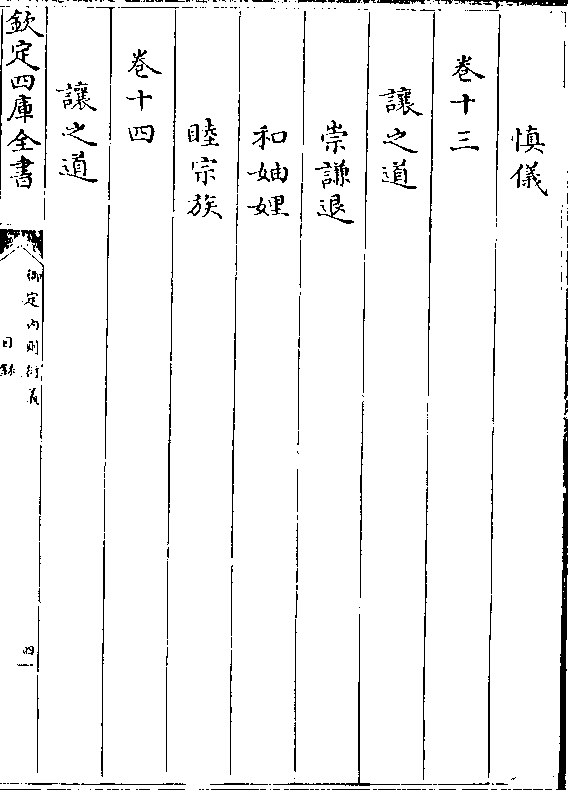 慎儀
卷十三
讓之道
崇謙退
和妯娌
睦宗族
卷十四
讓之道
欽定四庫全書
御定内則衍義
目錄
四